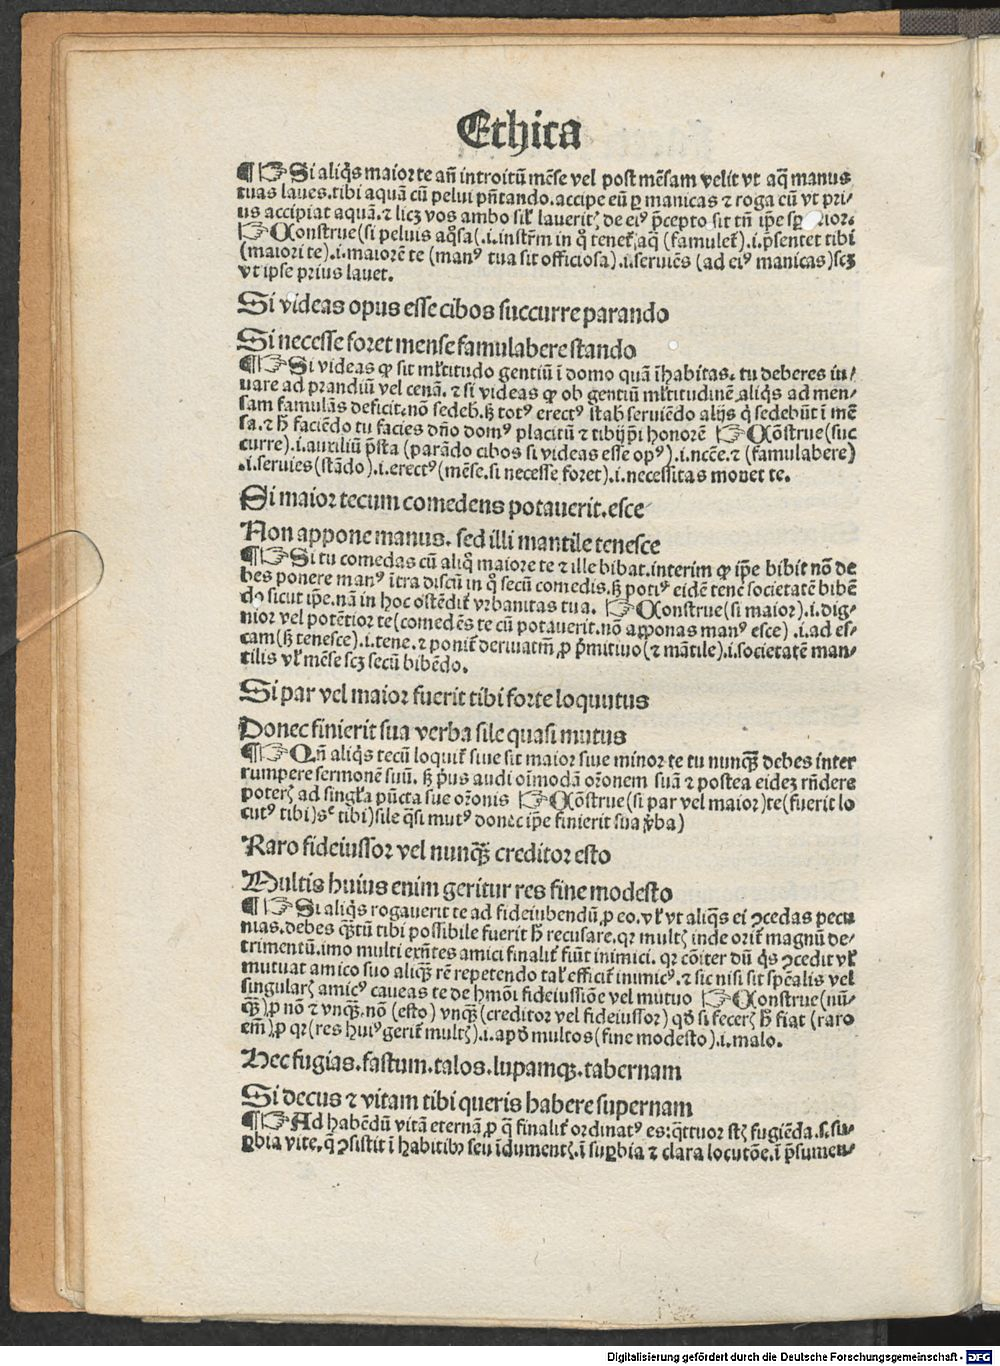 Ethica
¶☞Si aliq̃s maior te añ introitũ mẽse vel post mẽsam velit vt aq̃ manus
tuas laues. tibi aquã cũ pelui p̃ñtando. accipe eũ ꝑ manicas ⁊ roga cũ vt pri⸗
us accipiat aquã. ⁊ licꝫ vos ambo sil̃ laueritꝭ de eiꝰ p̃cepto sit tñ ip̃e
☞Cõnstrue (si peluis aq̃sa (.i. instr̃m in q̊ tenet̃ aq̃ (famulet̃) .i. p̃sentet tibi
(maiori te) .i. maiorẽ te (manꝰ tua sit officiosa) .i. seruiẽs (ad eiꝰ manicas) scꝫ
vt ipse prius lauet.
Si videas opus esse cibos succurre parando
Si necesse foret mense famulabere stando
¶☞Si videas ꝙ sit ml̃titudo gentiũ ĩ domo quã ĩhabitas. tu deberes iu⸗
uare ad prandiũ vel cenã. ⁊ si videas ꝙ ob gentiũ ml̃titudinẽ aliq̃s ad men⸗
sam famulãs deficit. nõ sedeb̃. sꝫ totꝰ erectꝰ stab̃ seruiẽdo alijs q̃ sedebũt ĩ mẽ
sa. ⁊ h̃ faciẽdo tu facies dño domꝰ placitũ ⁊ tibijp̃i honorẽ ☞Cõstrue (suc
curre) .i. auxiliũ p̃sta (parãdo cibos si videas esse opꝰ) .i. ncẽe. ⁊ (famulabere)
.i. seruies (stãdo) .i. erectꝰ (mẽse. si necesse foret) .i. necessitas mouet te.
Si maior tecum comedens potauerit. esce
Non appone manus. sed illi mantile tenesce
¶☞Si tu comedas cũ aliq̃ maiore te ⁊ ille bibat. interim ꝙ ip̃e bibit nõ de
bes ponere manꝰ ĩtra discũ in q̊ secũ comedis. sꝫ potiꝰ eidẽ tene societatẽ bibẽ
do sicut ip̃e. nã in hoc ostẽdit̃ vrbanitas tua. ☞Construe (si maior) .i. dig⸗
nior vel potẽtior te (comedẽs te cũ potauerit. nõ apponas manꝰ esce) .i. ad es⸗
cam (sꝫ tenesce) .i. tene. ⁊ ponit̃ deriuatm̃ ꝓ p̃mitiuo (⁊ mãtile) .i. societatẽ man⸗
tilis vl̃ mẽse scꝫ secũ bibẽdo.
Si par vel maior fuerit tibi forte loquutus
Donec finierit sua verba sile quasi mutus
¶☞Qñ aliq̃s tecũ loquit̃ siue sit maior siue minor te tu nunq̃ꝫ debes inter
rumpere sermonẽ suũ. sꝫ p̃us audi oĩmodã or̃onem suã ⁊ postea eideꝫ rñdere
poterꝭ ad singl̃a pũcta sue or̃onis ☞Cõstrue (si par vel maior) te (fuerit lo
cutꝰ tibi) sꝫ tibi) sile q̃si mutꝰ donec ip̃e finierit sua v̾ba)
Raro fideiussor vel nunq̃ꝫ creditor esto
Multis huius enim geritur res fine modesto
¶☞Si aliq̃s rogauerit te ad fideiubendũ ꝓ eo. vl̃ vt aliq̃s ei ꝯcedas pecu
nias. debes q̃ꝫtũ tibi possibile fuerit h̃ recusare. qꝛ multꝭ inde orit̃ magnũ de⸗
trimentũ. imo multi exñtes amici finalit̃ fiũt inimici. qꝛ cõiter dũ q̃s ꝯcedit vl̃
mutuat amico suo aliq̃ꝫ rẽ repetendo tal̃ efficit̃ inimicꝰ. ⁊ sic nisi sit sp̃ealis vel
singularꝭ amicꝰ caueas te de hmõi fideiussiõe vel mutuo ☞Construe (nũ⸗
q̃ꝫ) ꝓ nõ ⁊ vnq̃ꝫ. nõ (esto) vnq̃ꝫ (creditor vel fideiussor) qꝺ si fecerꝭ h̃ fiat (raro
em̃) ꝓ qꝛ (res huiꝰ gerit̃ multꝭ) .i. apꝺ multos (fine modesto) .i. malo.
Hec fugias. fastum. talos. lupamqꝫ. tabernam
Si decus ⁊ vitam tibi queris habere supernam
¶☞Ad habẽdũ vitã eternã, ꝓ q̃ finalit̃ ordinatꝰ es: q̃ttuor st̃ꝭ fugiẽda. s. su⸗
ꝑbia vite, q̃ ꝯsistit ĩ habitibꝰ seu ĩdumentꝭ. ĩ suꝑbia ⁊ clara locutõe. ĩ p̃sumen⸗
Digitalisierung gefördert durch die Deutsche Forschungsgemeinschaft - DFG